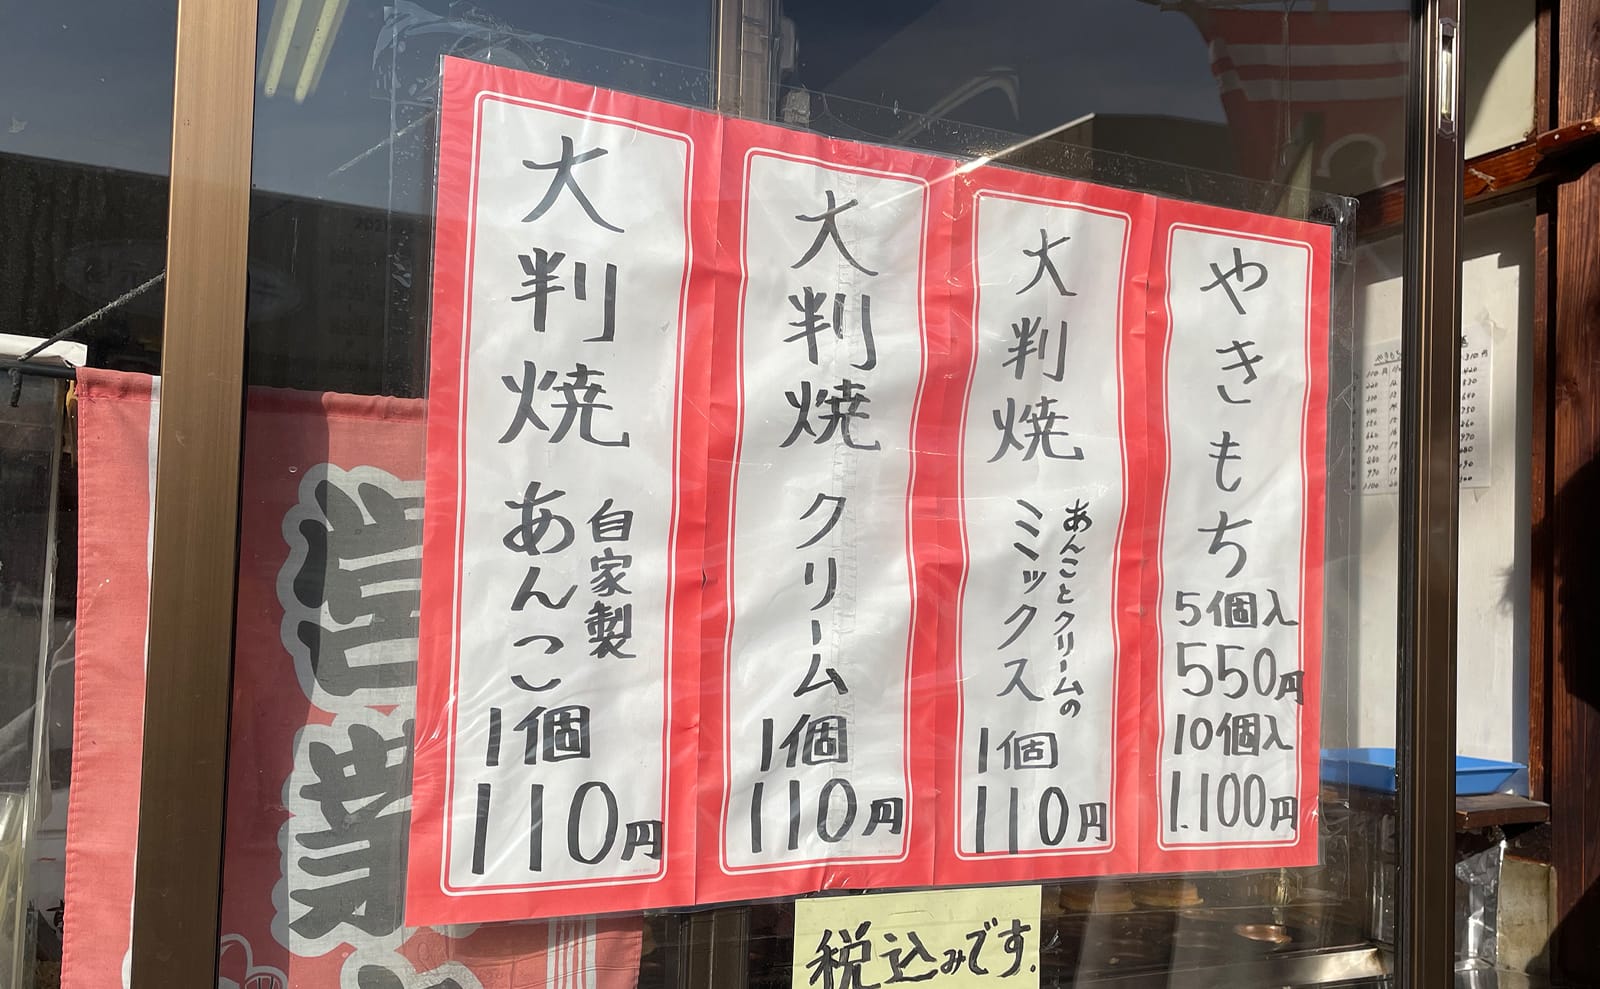 大判焼
自家製
あんこ
1個
110円
大判焼
クリーム
1個
110円
大判焼
あんことクリームの
ミックス
1個
110円
やきもち
5個入
550円
10個入
1.100円
税込みです.
営業